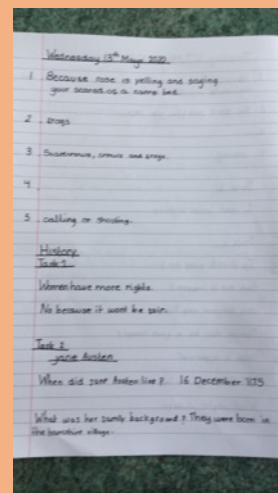 Wednesday 13th May 2020
1 Because rose is yelling and saying
your scared of a name bed.
2 . Frogs
3 . and frogs.
4 .
5 . calling or shouting.
History
Task 1
Women have more rights.
No because it wont be fair.
Task 2
jane Austen
When did jane Austen live? 16 December 1775
What was her family background? They were born in
the hampshire village.